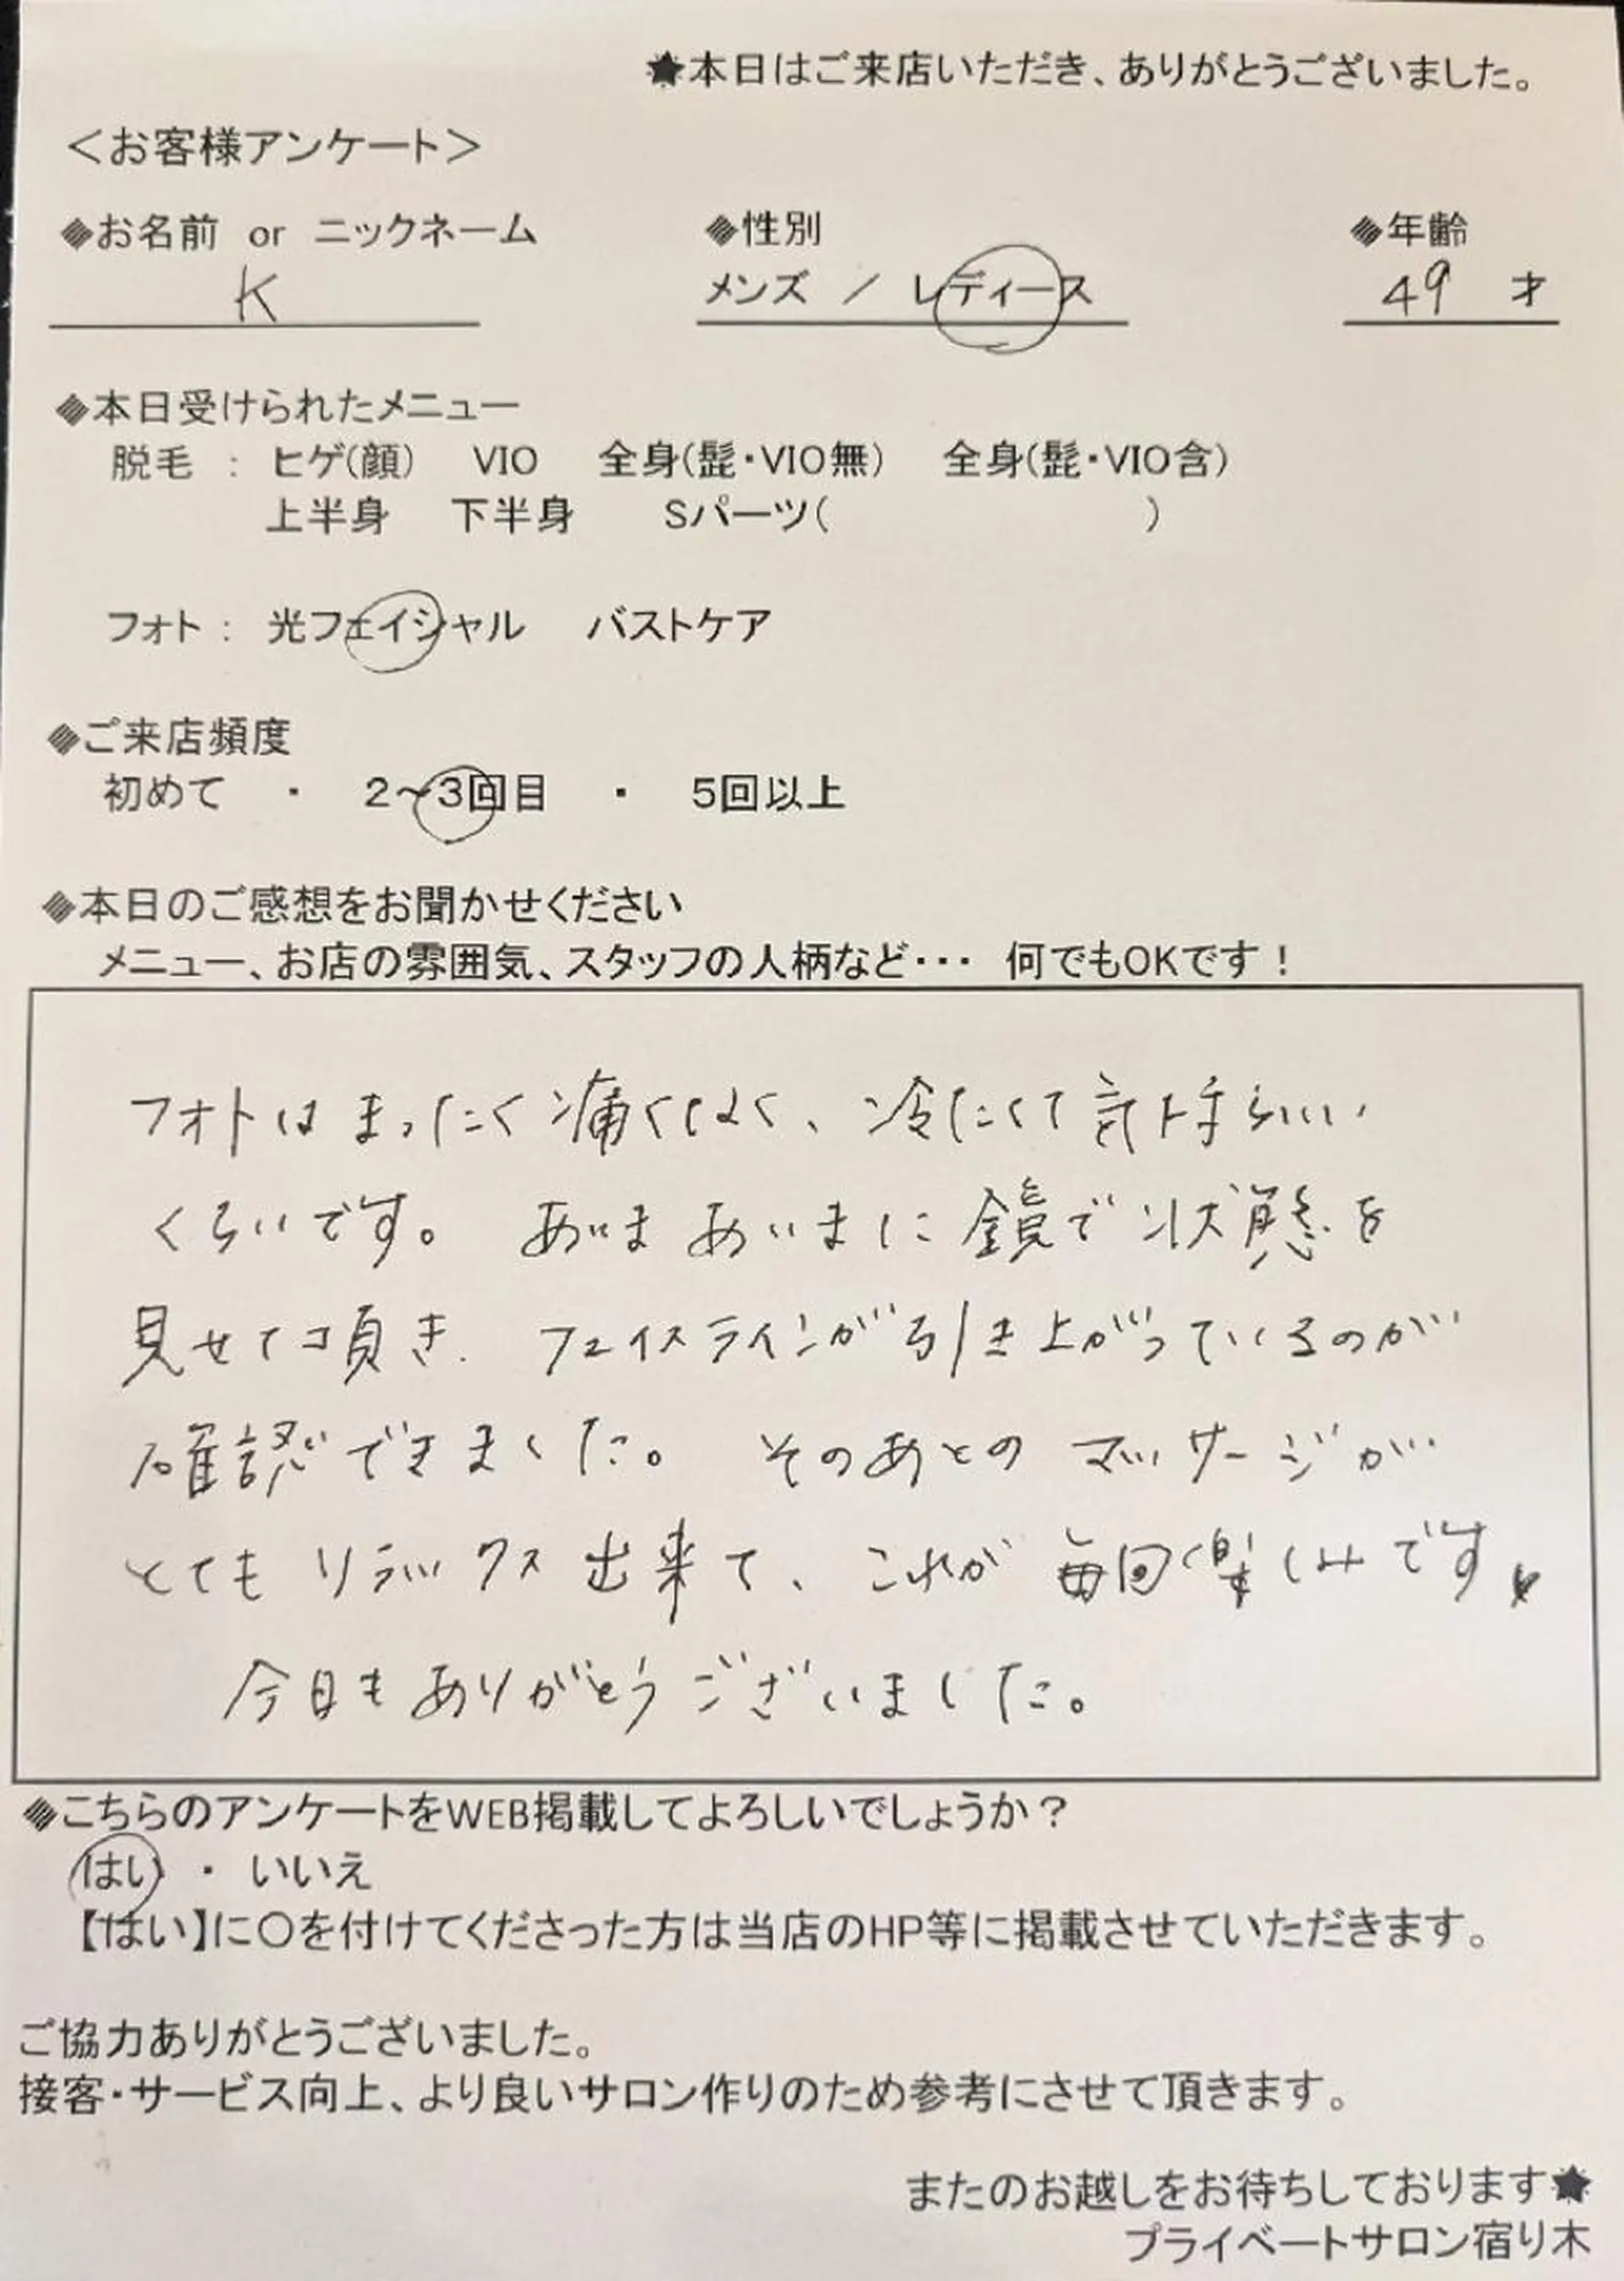 ★本日はご来店いただき、ありがとうございました。
＜お客様アンケート＞
◆お名前 or ニックネーム ◆性別 ◆年齢
K メンズ ／ レディース 49 才
◆本日受けられたメニュー
脱毛 ： ヒゲ(顔) VIO 全身(髭・VIO無) 全身(髭・VIO含)
上半身 下半身 Sパーツ( )
フォト ： 光フェイシャル バストケア
◆ご来店頻度
初めて ・ 2～3回目 ・ 5回以上
◆本日のご感想をお聞かせください
メニュー、お店の雰囲気、スタッフの人柄など・・・ 何でもOKです！
フォトはまったく痛くなく、冷たくて気持ちいい
くらいです。 あいまあいまに鏡で状態を
見せて頂き、フェイスラインが引き上がっているのが
確認できました。 そのあとの マッサージが
とてもリラックス出来て、これが毎回楽しみです♥
今日もありがとうございました。
◆こちらのアンケートをWEB掲載してよろしいでしょうか？
はい ・ いいえ
【はい】に〇を付けてくださった方は当店のHP等に掲載させていただきます。
ご協力ありがとうございました。
接客・サービス向上、より良いサロン作りのため参考にさせて頂きます。
またのお越しをお待ちしております★
プライベートサロン宿り木